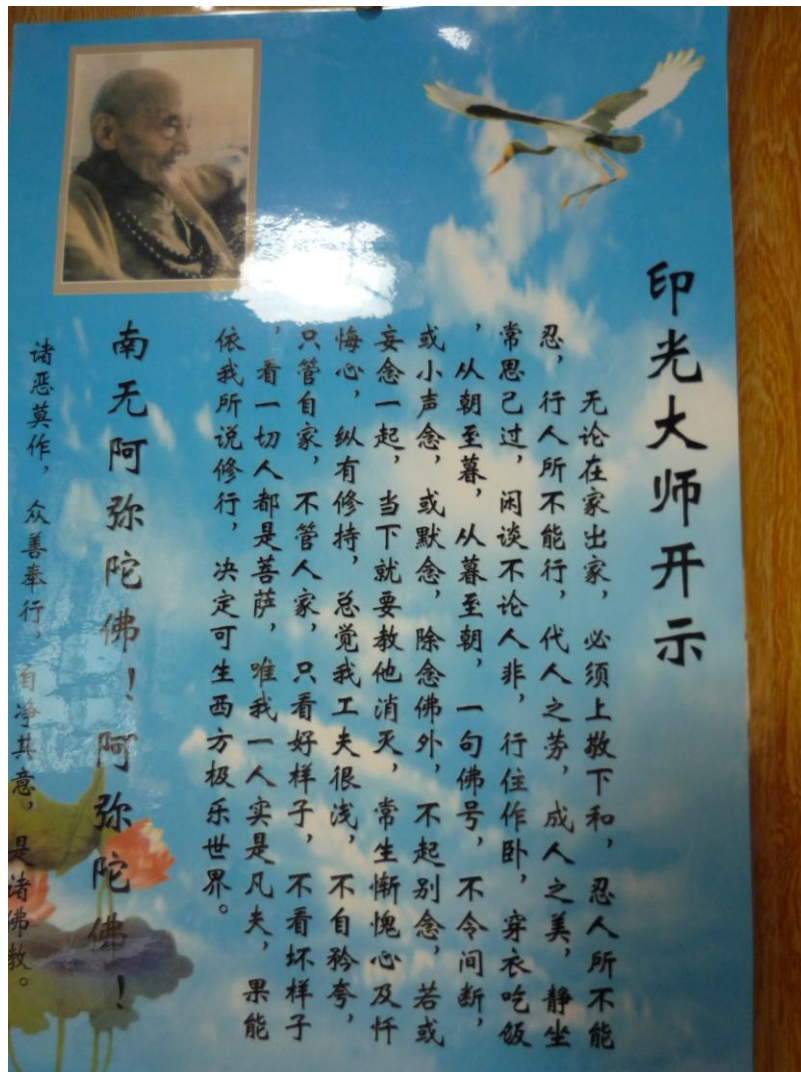 印光大师开示
无论在家出家，必须上敬下和，忍人所不能
忍，行人所不能行，代人之劳，成人之美，静坐
常思己过，闲谈不论人非，行住作卧，穿衣吃饭
，从朝至暮，从暮至朝，一句佛号，不令间断，
或小声念，或默念，除念佛外，不起别念，若或
妄念一起，当下就要教他消灭，常生惭愧心及忏
悔心，纵有修持，总觉我工夫很浅，不自矜夸，
只管自家，不管人家，只看好样子，不看坏样子
，看一切人都是菩萨，唯我一人实是凡夫，果能
依我所说修行，决定可生西方极乐世界。
南无阿弥陀佛！阿弥陀佛！
诸恶莫作，众善奉行，自净其意，是诸佛教。